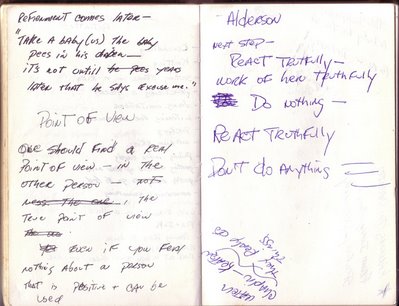 Refinement comes later —
"Take a baby (us) the baby
pees in his diaper —
it's not until he pees years
later that he says excuse me."
Point of View
One should find a real
point of view — in the
other person — not
, the
true point of view
Even if you feel
nothing about a person
that is positive + can be
used
Alderson
next step —
React Truthfully —
work off her truthfully
Do nothing —
React Truthfully
Don't do Anything